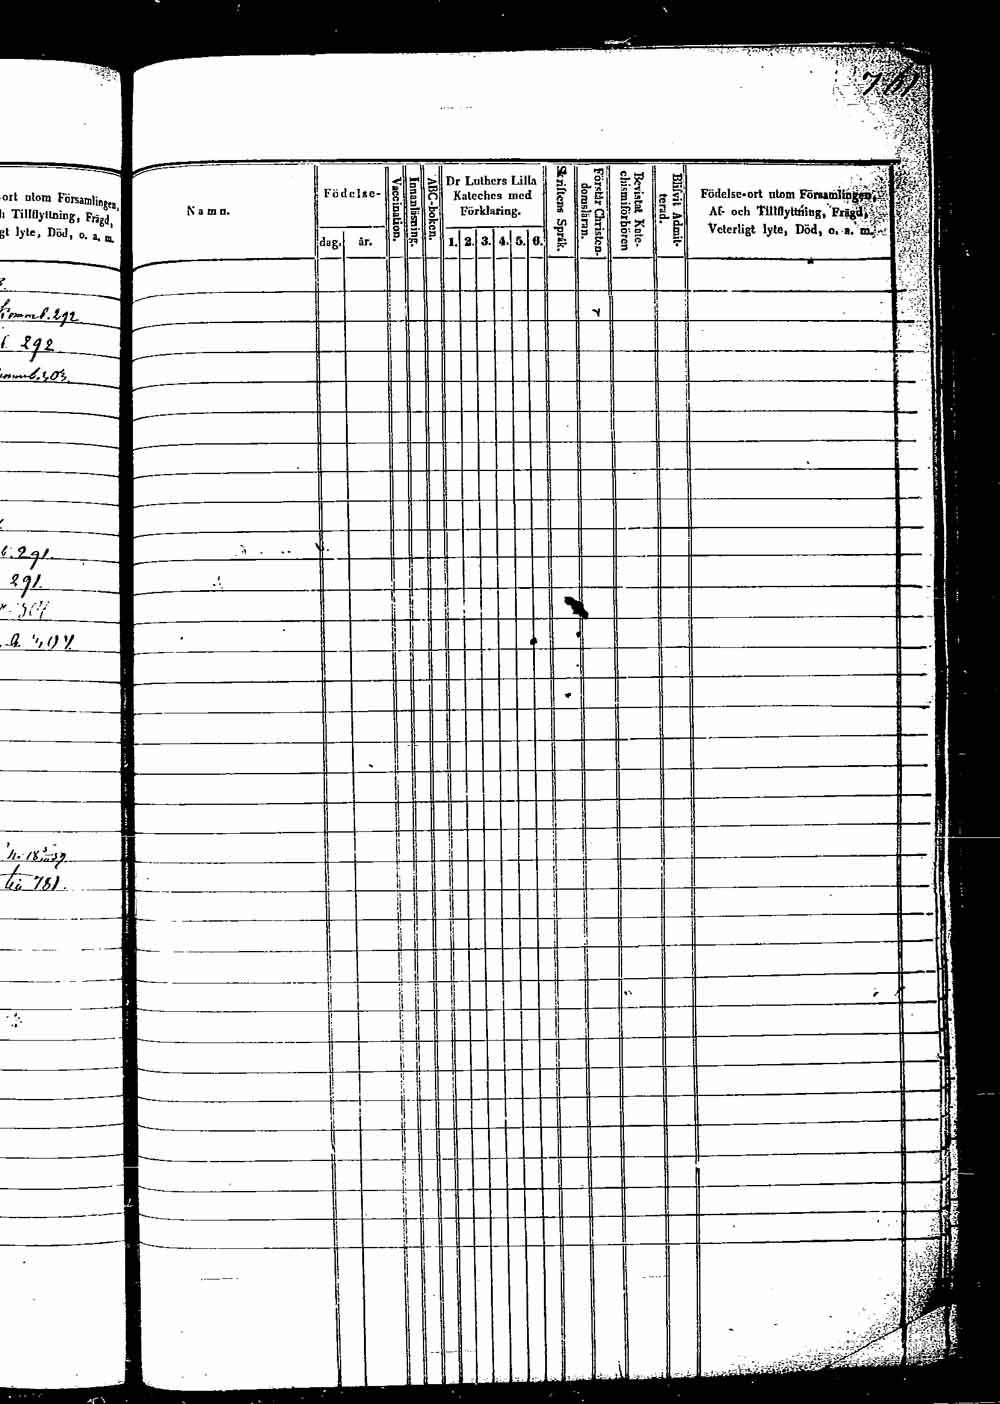 761
-ort utom Församlingen,
h Tillflyttning, Frägd,
gt lyte, Död, o. a. m.
292
292
303.
291.
291.
781.
Namn.
Födelse-
dag. år.
Vaccination.
Innanläsning.
ABC-boken.
Dr Luthers Lilla
Kateches med
Förklaring.
1. 2. 3. 4. 5. 6.
Skriftens Språk.
Förstår Christen-
domsläran.
Bevistat Kate-
chismiförhören
Blifvit Admit-
terad.
Födelse-ort utom Församlingen,
Af- och Tillflyttning, Frägd,
Veterligt lyte, Död, o. a. m.